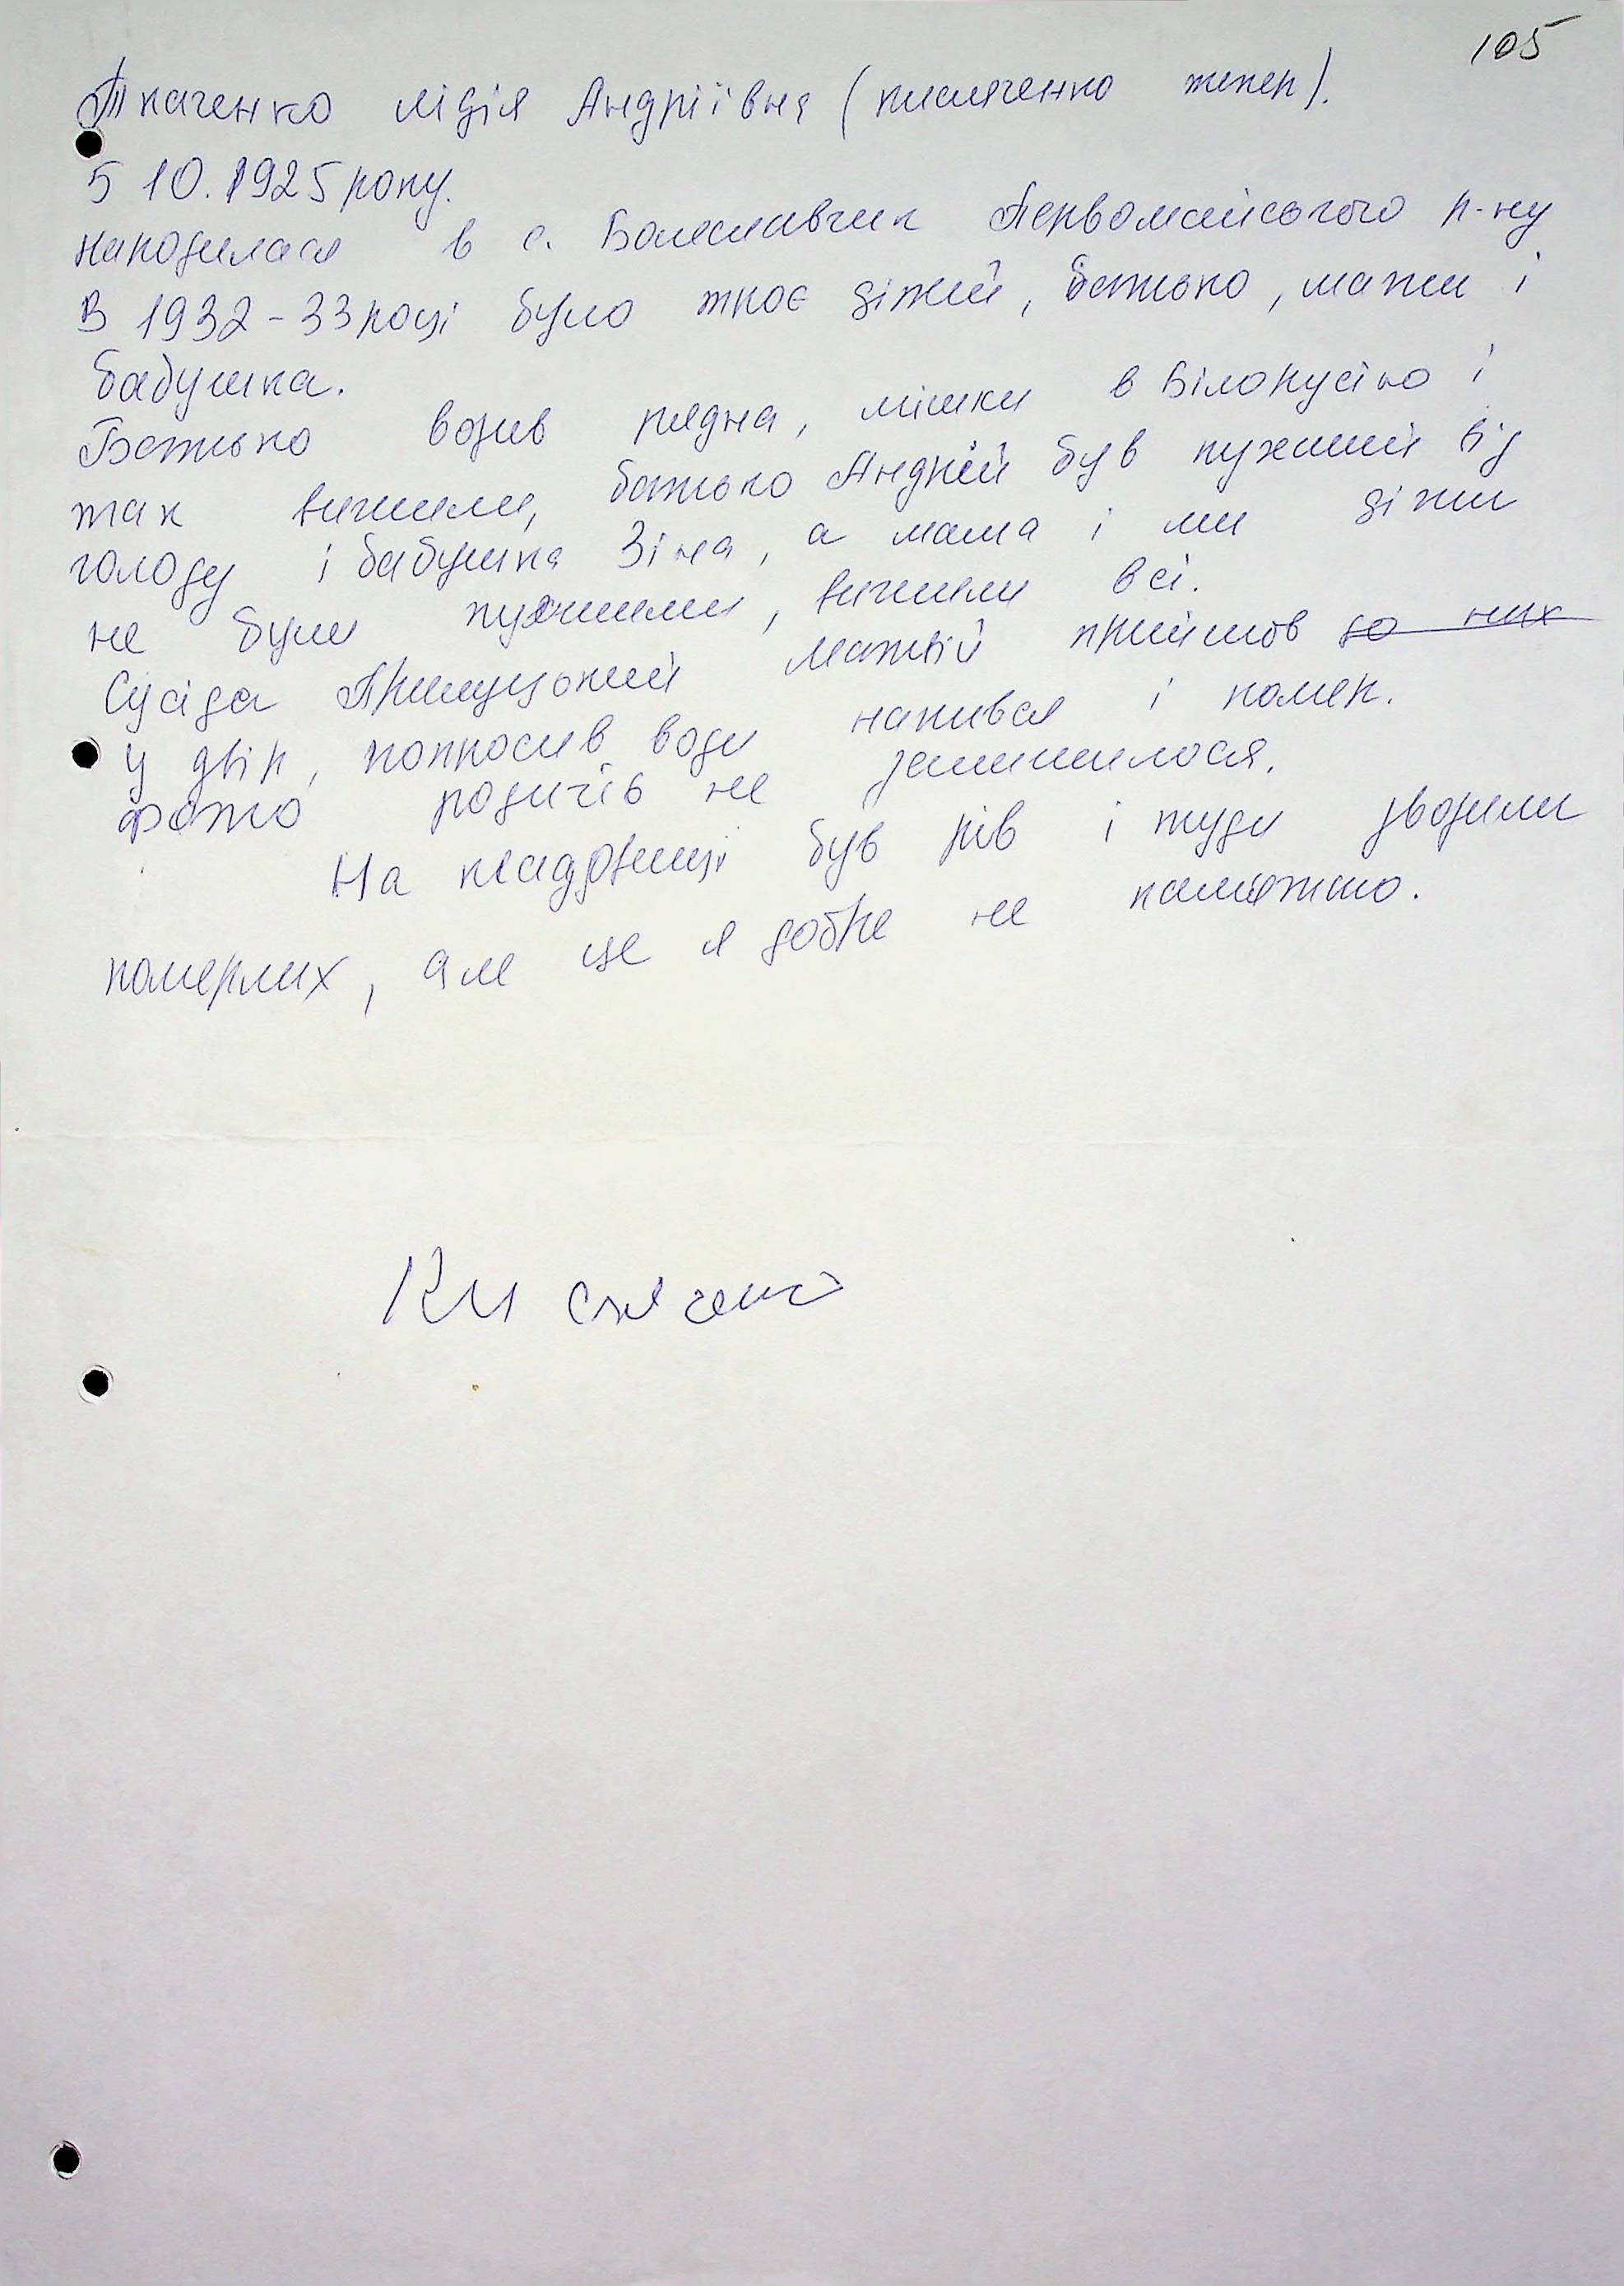 105
Ткаченко Лідія Андріївна (Кисляченко тепер).
5 10. 1925 року.
народилася в с. Болеславчик Первомайського р-ну
В 1932-33 році було троє дітей, батько, мати і
бабушка.
Батько возив рядна, мішки в Білорусію і
так вижили, батько Андрій був пухлий від
голоду і бабушка Зіна, а мама і ми діти
не були пухлими, вижили всі.
Сусіда Прилуцький Матвій прийшов до них
у двір, попросив води напився і помер.
Фото родичів не залишилося.
На кладовищі був рів і туди звозили
померлих, але це я добре не пам'ятаю.